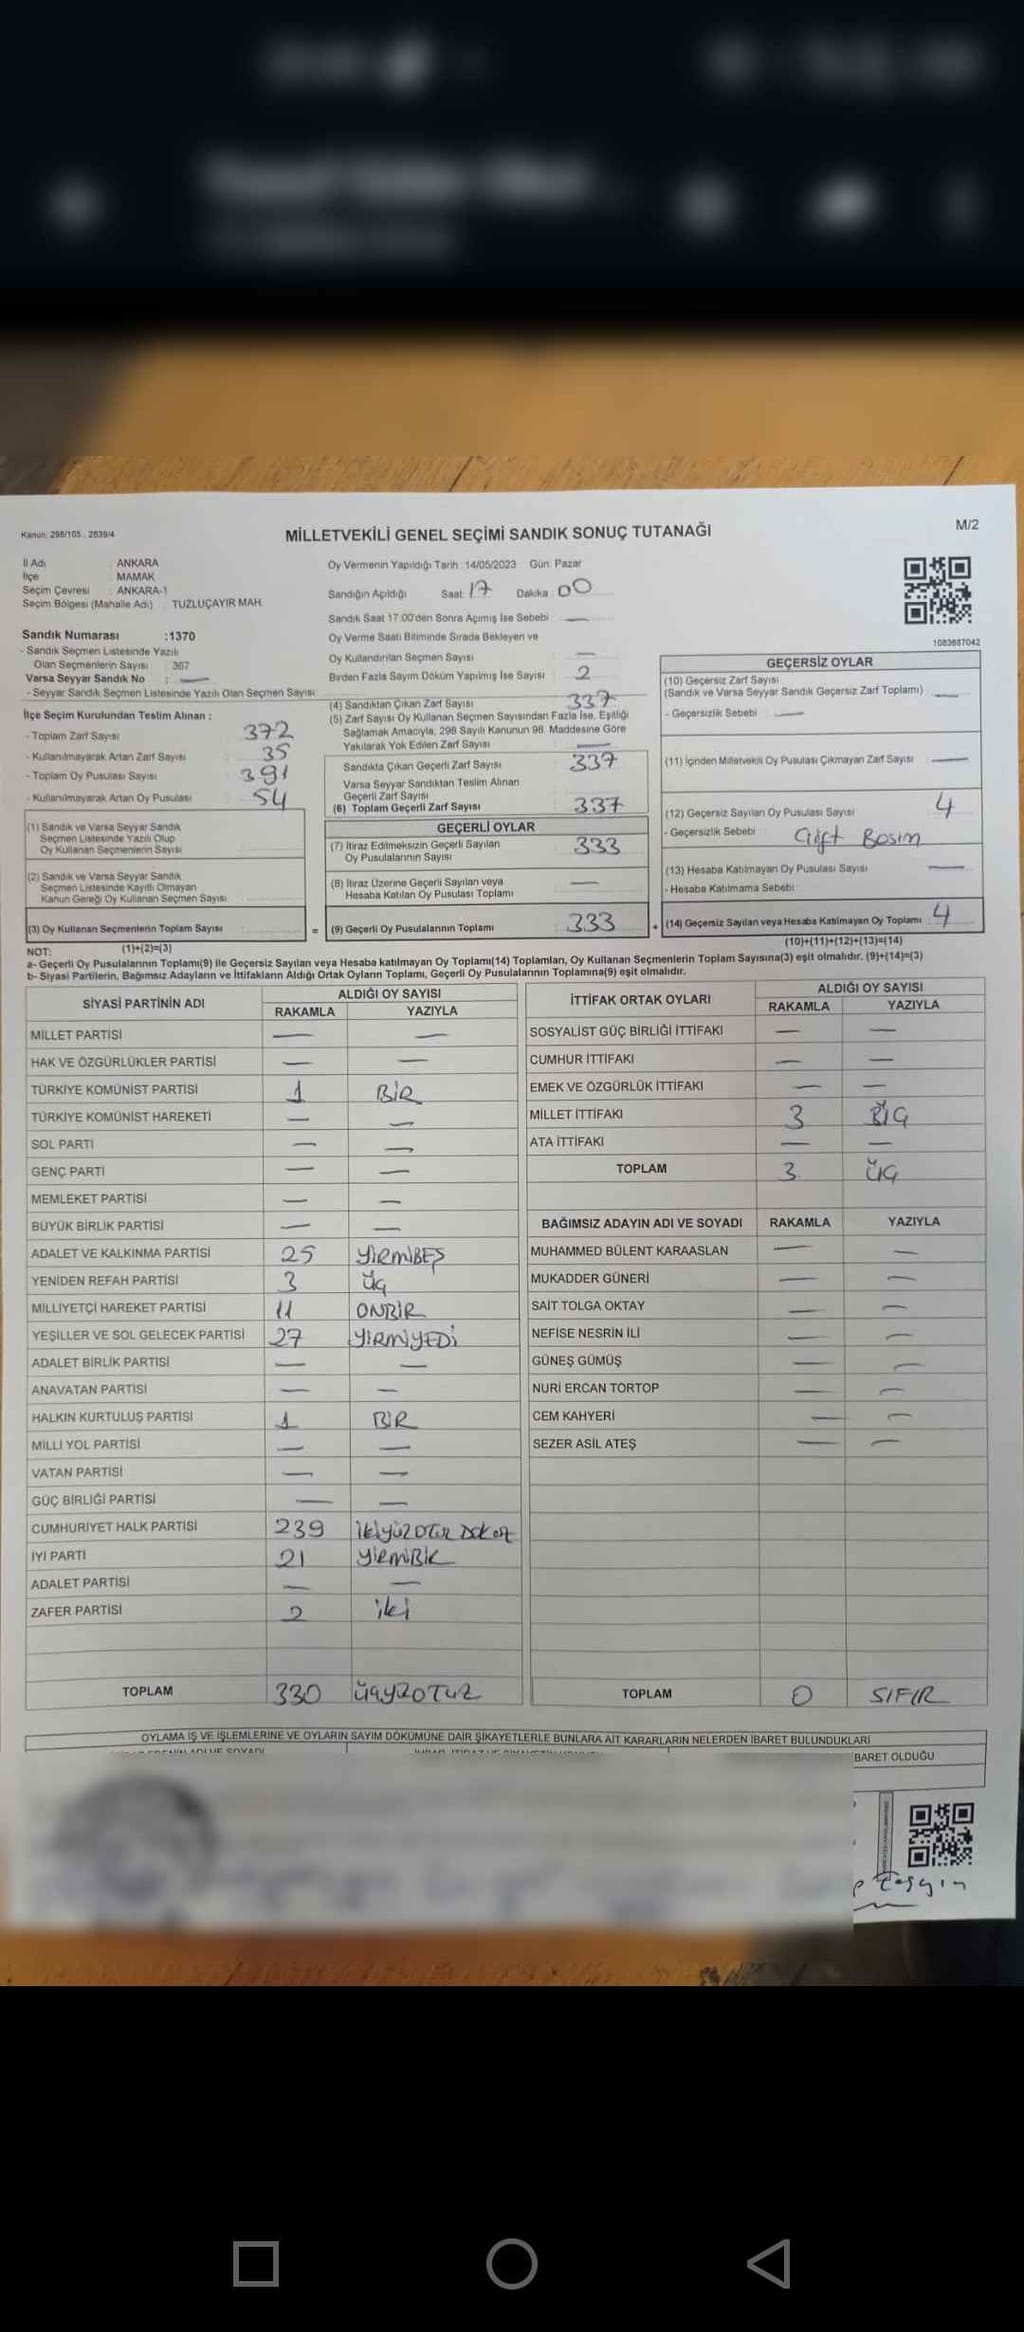 Kanun: 298/105 , 2839/4
MİLLETVEKİLİ GENEL SEÇİMİ SANDIK SONUÇ TUTANAĞI
M/2
İl Adı : ANKARA
İlçe : MAMAK
Seçim Çevresi : ANKARA-1
Seçim Bölgesi (Mahalle Adı) : TUZLUÇAYIR MAH.
Oy Vermenin Yapıldığı Tarih : 14/05/2023 Gün: Pazar
Sandığın Açıldığı Saat: 17 Dakika: 00
Sandık Saat 17:00'den Sonra Açımış İse Sebebi : —
Oy Verme Saati Bitiminde Sırada Bekleyen ve
Oy Kullandırılan Seçmen Sayısı —
Birden Fazla Sayım Döküm Yapılmış İse Sayısı 2
1083887042
Sandık Numarası :1370
- Sandık Seçmen Listesinde Yazılı
Olan Seçmenlerin Sayısı : 367
Varsa Seyyar Sandık No : —
- Seyyar Sandık Seçmen Listesinde Yazılı Olan Seçmen Sayısı
İlçe Seçim Kurulundan Teslim Alınan :
- Toplam Zarf Sayısı 372
- Kullanılmayarak Artan Zarf Sayısı 35
- Toplam Oy Pusulası Sayısı 391
- Kullanılmayarak Artan Oy Pusulası 54
(1) Sandık ve Varsa Seyyar Sandık
Seçmen Listesinde Yazılı Olup
Oy Kullanan Seçmenlerin Sayısı
(2) Sandık ve Varsa Seyyar Sandık
Seçmen Listesinde Kayıtlı Olmayan
Kanun Gereği Oy Kullanan Seçmen Sayısı
(3) Oy Kullanan Seçmenlerin Toplam Sayısı
=
(4) Sandıktan Çıkan Zarf Sayısı 337
(5) Zarf Sayısı Oy Kullanan Seçmen Sayısından Fazla İse, Eşitliği
Sağlamak Amacıyla, 298 Sayılı Kanunun 98. Maddesine Göre
Yakılarak Yok Edilen Zarf Sayısı —
Sandıkta Çıkan Geçerli Zarf Sayısı 337
Varsa Seyyar Sandıktan Teslim Alınan
Geçerli Zarf Sayısı
(6) Toplam Geçerli Zarf Sayısı 337
GEÇERLİ OYLAR
(7) İtiraz Edilmeksizin Geçerli Sayılan
Oy Pusulalarının Sayısı 333
(8) İtiraz Üzerine Geçerli Sayılan veya
Hesaba Katılan Oy Pusulası Toplamı —
(9) Geçerli Oy Pusulalarının Toplamı 333
+
GEÇERSİZ OYLAR
(10) Geçersiz Zarf Sayısı
(Sandık ve Varsa Seyyar Sandık Geçersiz Zarf Toplamı) —
- Geçersizlik Sebebi : —
(11) İçinden Milletvekili Oy Pusulası Çıkmayan Zarf Sayısı —
(12) Geçersiz Sayılan Oy Pusulası Sayısı 4
- Geçersizlik Sebebi : Çift Basım
(13) Hesaba Katılmayan Oy Pusulası Sayısı —
- Hesaba Katılmama Sebebi
(14) Geçersiz Sayılan veya Hesaba Katılmayan Oy Toplamı 4
NOT: (1)+(2)=(3) (10)+(11)+(12)+(13)=(14)
a- Geçerli Oy Pusulalarının Toplamı(9) ile Geçersiz Sayılan veya Hesaba katılmayan Oy Toplamı(14) Toplamları, Oy Kullanan Seçmenlerin Toplam Sayısına(3) eşit olmalıdır. (9)+(14)=(3)
b- Siyasi Partilerin, Bağımsız Adayların ve İttifakların Aldığı Ortak Oyların Toplamı, Geçerli Oy Pusulalarının Toplamına(9) eşit olmalıdır.
SİYASİ PARTİNİN ADI ALDIĞI OY SAYISI
RAKAMLA YAZIYLA
MİLLET PARTİSİ — —
HAK VE ÖZGÜRLÜKLER PARTİSİ — —
TÜRKİYE KOMÜNİST PARTİSİ 1 BİR
TÜRKİYE KOMÜNİST HAREKETİ — —
SOL PARTİ — —
GENÇ PARTİ — —
MEMLEKET PARTİSİ — —
BÜYÜK BİRLİK PARTİSİ — —
ADALET VE KALKINMA PARTİSİ 25 YİRMİBEŞ
YENİDEN REFAH PARTİSİ 3 ÜÇ
MİLLİYETÇİ HAREKET PARTİSİ 11 ONBİR
YEŞİLLER VE SOL GELECEK PARTİSİ 27 YİRMİYEDİ
ADALET BİRLİK PARTİSİ — —
ANAVATAN PARTİSİ — —
HALKIN KURTULUŞ PARTİSİ 1 BİR
MİLLİ YOL PARTİSİ — —
VATAN PARTİSİ — —
GÜÇ BİRLİĞİ PARTİSİ — —
CUMHURİYET HALK PARTİSİ 239 İkiyüzOTuz Dokuz
İYİ PARTİ 21 YİRMİBİR
ADALET PARTİSİ — —
ZAFER PARTİSİ 2 iki
TOPLAM 330 ÜÇYÜZOTUZ
İTTİFAK ORTAK OYLARI ALDIĞI OY SAYISI
RAKAMLA YAZIYLA
SOSYALİST GÜÇ BİRLİĞİ İTTİFAKI — —
CUMHUR İTTİFAKI — —
EMEK VE ÖZGÜRLÜK İTTİFAKI — —
MİLLET İTTİFAKI 3 ÜÇ
ATA İTTİFAKI — —
TOPLAM 3 ÜÇ
BAĞIMSIZ ADAYIN ADI VE SOYADI RAKAMLA YAZIYLA
MUHAMMED BÜLENT KARAASLAN — —
MUKADDER GÜNERİ — —
SAİT TOLGA OKTAY — —
NEFİSE NESRİN İLİ — —
GÜNEŞ GÜMÜŞ — —
NURİ ERCAN TORTOP — —
CEM KAHYERİ — —
SEZER ASİL ATEŞ — —
TOPLAM 0 SIFIR
OYLAMA İŞ VE İŞLEMLERİNE VE OYLARIN SAYIM DÖKÜMÜNE DAİR ŞİKAYETLERLE BUNLARA AİT KARARLARIN NELERDEN İBARET BULUNDUKLARI
BARET OLDUĞU